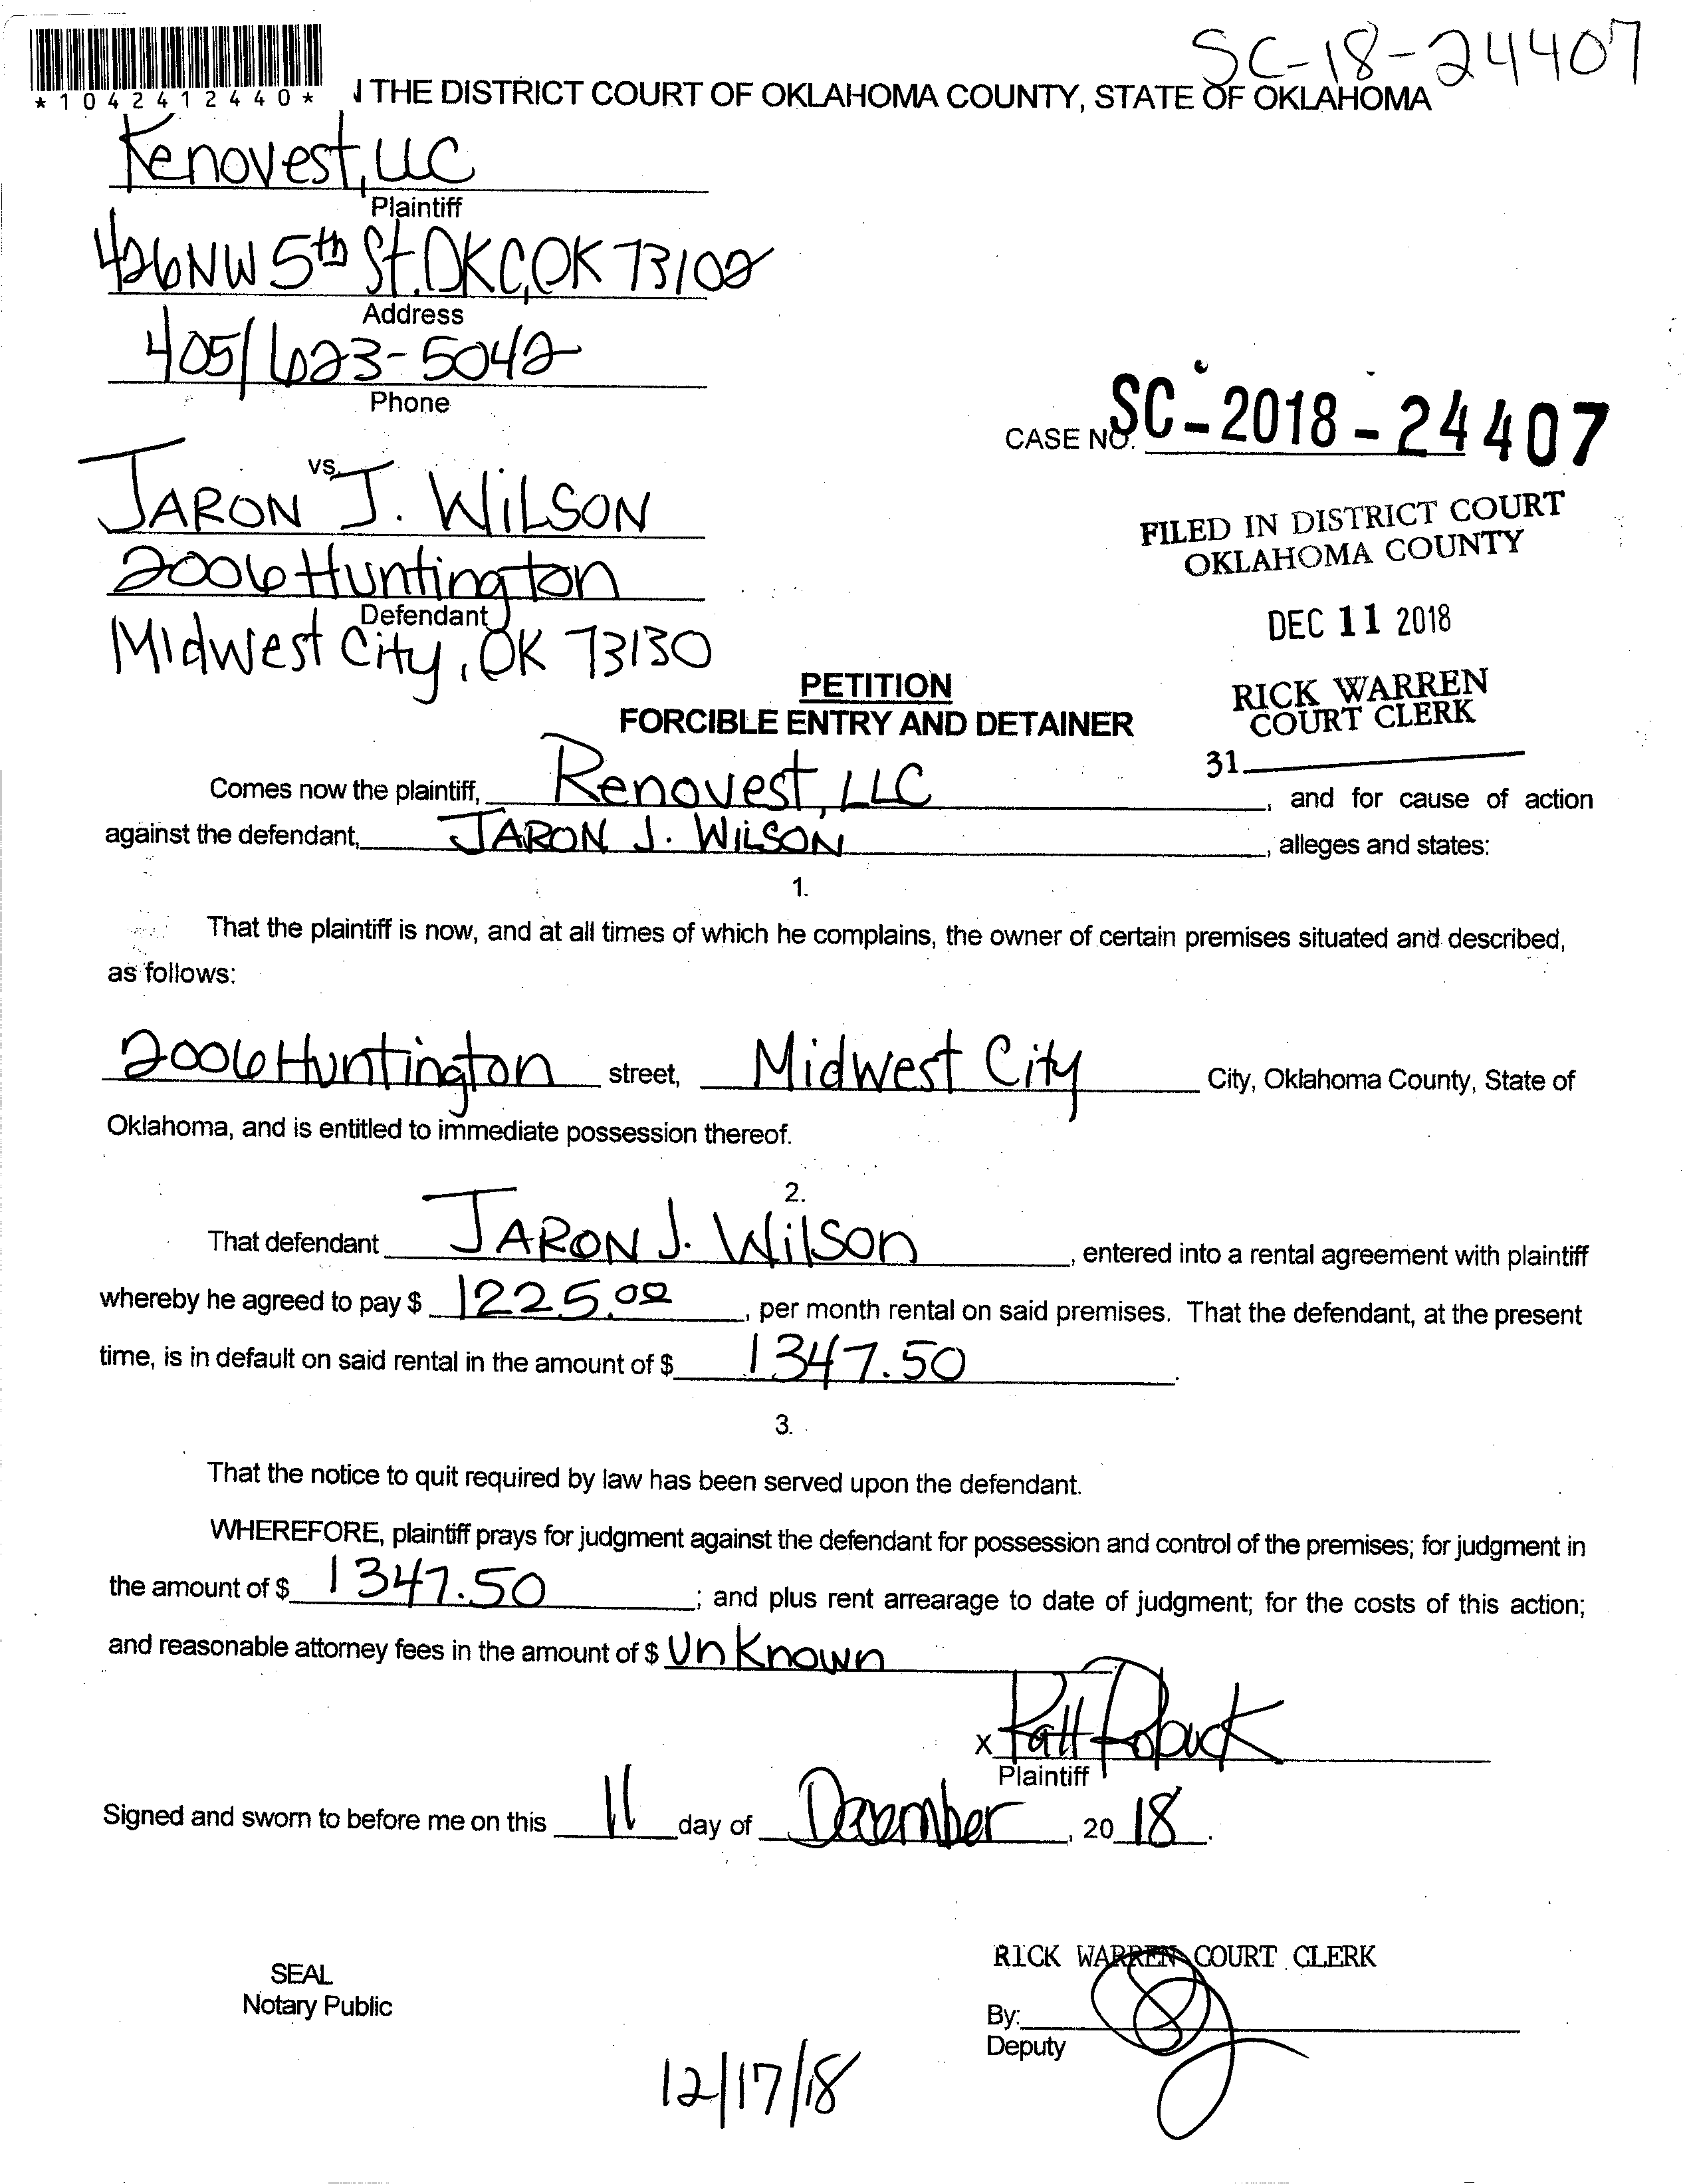 SC-18-24407
*1042412440*
THE DISTRICT COURT OF OKLAHOMA COUNTY, STATE OF OKLAHOMA
Renovest, LLC
Plaintiff
426 NW 5th St. OKC, OK 73102
Address
405/623-5042
Phone
CASE NO. SC-2018-24407
vs.
JARON J. WILSON
2006 Huntington
Defendant
Midwest City, OK 73130
FILED IN DISTRICT COURT
OKLAHOMA COUNTY
DEC 11 2018
RICK WARREN
COURT CLERK
31
PETITION
FORCIBLE ENTRY AND DETAINER
Comes now the plaintiff, Renovest, LLC, and for cause of action
against the defendant, JARON J. WILSON, alleges and states:
1.
That the plaintiff is now, and at all times of which he complains, the owner of certain premises situated and described,
as follows:
2006 Huntington street, Midwest City City, Oklahoma County, State of
Oklahoma, and is entitled to immediate possession thereof.
2.
That defendant JARON J. Wilson, entered into a rental agreement with plaintiff
whereby he agreed to pay $ 1225.00, per month rental on said premises. That the defendant, at the present
time, is in default on said rental in the amount of $ 1347.50.
3.
That the notice to quit required by law has been served upon the defendant.
WHEREFORE, plaintiff prays for judgment against the defendant for possession and control of the premises; for judgment in
the amount of $ 1347.50; and plus rent arrearage to date of judgment; for the costs of this action;
and reasonable attorney fees in the amount of $ Unknown
x Patt Robuck
Plaintiff
Signed and sworn to before me on this 11 day of December, 2018.
RICK WARREN COURT CLERK
SEAL
Notary Public
By:
Deputy
12/17/18